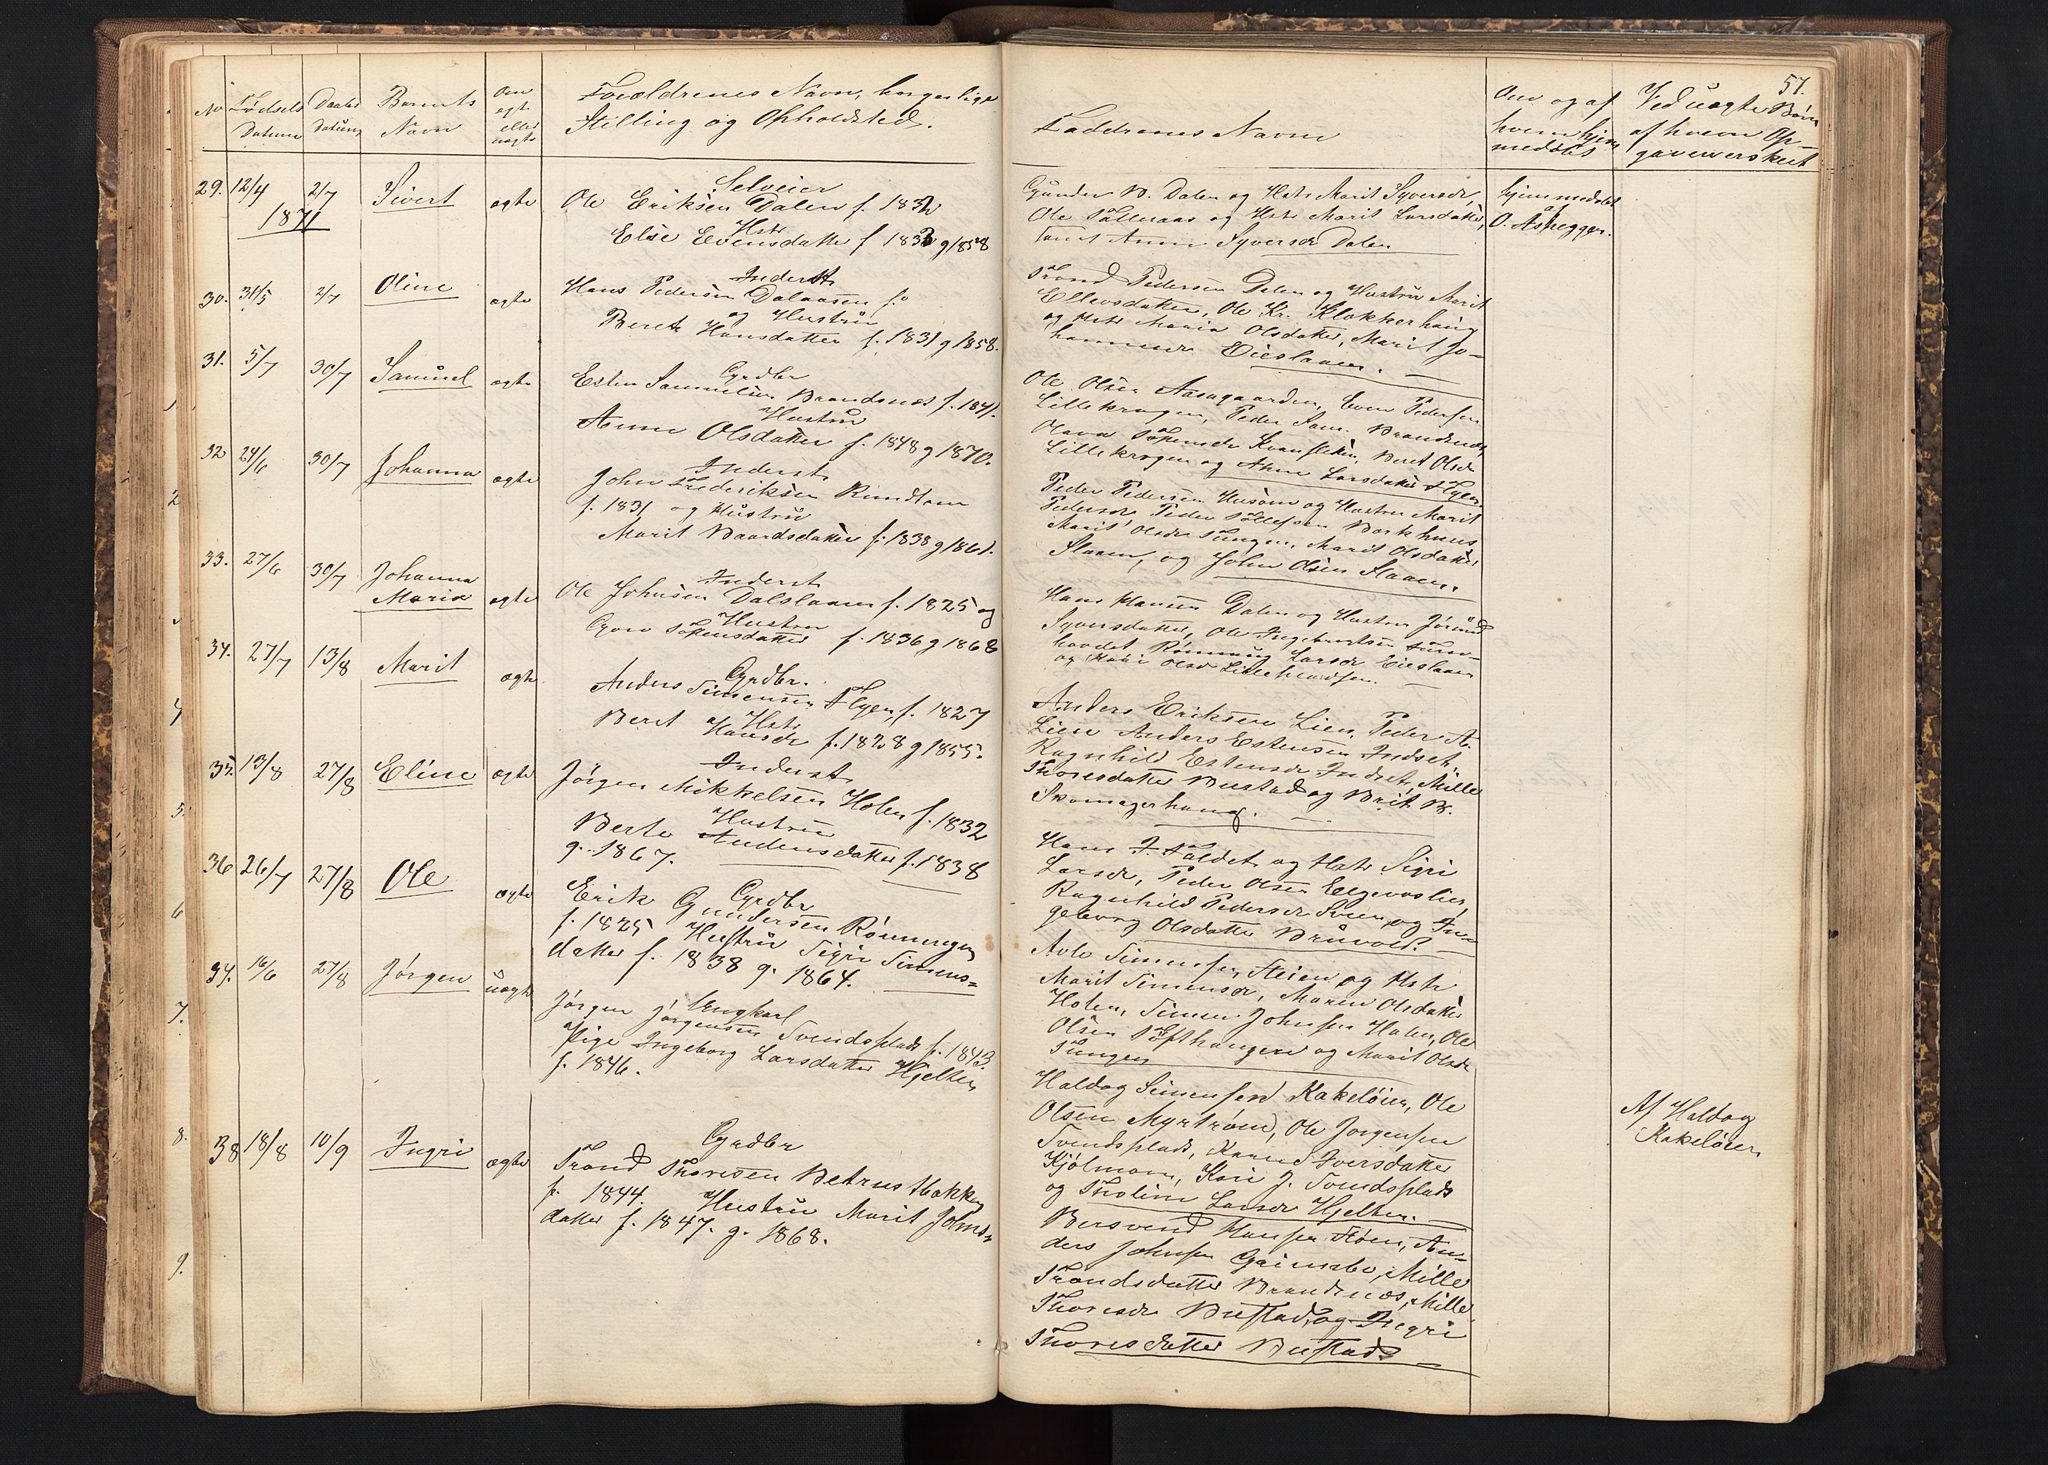 57.
No Fødsels Daabs Barnets Om Forældrenes Navn, borgerlige
Datum Datum Navn ægt Stilling og Opholdsted.
eller
uægte
Faddrenes Navne
Om og af
hvem hjem
medøbt
Ved uægte Børn
af hvem Op-
gaven
29. 12/4 2/7 Sivert ægte Selveier
1871
Ole Eriksen Dalen f. 1832
Hstr
Else Evensdatter f. 1832 g 1858
Gunder B. Dalen og Hstr Marit Syversdr
Ole og Hstr Marit Larsdatter,
samt Anne Syversdr Dalen
hjemmedøbt
af
O. Aspeggen.
30. 31/5 2/7 Oline ægte Inderst
Hans Pedersen Dalaasen f.
og Hustru
Beret Hansdatter f. 1831 g 1858.
Trond Pedersen Dalen og Hustru Marit
Ellevsdatter, Ole Kr. Klokkerhaug
og Hstr Maria Olsdatter, Marit Jo-
hannesdr Eieslaaen.
31. 5/7 30/7 Samuel ægte Grdbr
Esten Samuelsen Brandsnæs f. 1841.
Hustru
Anne Olsdatter f. 1848 g 1870.
Ole Olsen Aasegaarden, Even Pedersen
Lillekrogen, Peder Sam. Brandsnæs,
Beret Olsdr
Lillekrogen og Anne Larsdatter
32 24/6 30/7 Johanna ægte Inderst
John Frederiksen
f. 1831 og Hustru
Marit Baardsdatter f. 1838 g 1861.
Peder Pedersen Husom og Hustru Marit
Pedersdr Peder Tollefsen Bakhuus
Marit Olsdr Tungen, Marit Olsdatter
Slaaen, og John Olsen Slaaen.
33. 27/6 30/7 Johanna
Maria ægte Inderst
Ole Johnsen Dalslaaen f. 1825 og
Hustru
Guro f. 1836 g 1868
Hans Hansen Dalen og Hustru Jørund
Syversdatter, Ole Ingebrigtsen
Rønnaug Larsdr Eieslaaen
og Kari Olsdr
34. 27/7 13/8 Marit ægte Grdbr.
Anders Simensen f. 1827
Hstr
Beret Hansdr f. 1828 g 1855.
Anders Eriksen Lien, Peder A.
Lien Anders Estensen Indset,
Ragnhild Estensdr Indset, Mille
Thoresdatter Bustad og Brit B.
Skomagerhaug.
35. 13/8 27/8 Eline ægte Inderst
Jørgen Mikkelsen Holen f. 1832
Hustru
Berte Andersdatter f. 1838
g. 1867.
Hans J. Foldet og Hstr Sigri
Larsdr, Peder Olsen
Ragnhild Pedersdr Sveen og In-
geborg Olsdatter Bruvold.
36 26/7 27/8 Ole ægte Grdbr
Erik Gundersen Rønningen
f. 1825 Hustru Sigri Simens-
datter f. 1838 g. 1864.
Avle Simensen Steien og Hstr
Marit Simensdr, Maren Olsdatter
Holen, Simen Johnsen Holen, Ole
Olsen og Marit Olsdr
Tungen
37. 16/6 27/8 Jørgen uægte Ungkarl
Jørgen Jørgensen Svendsplads f. 1843.
Pige Ingeborg Larsdatter Hjelten
f. 1846.
Haldog Simensen Kakeløien, Ole
Olsen Myrtrøen, Ole Jørgensen
Svendsplads, Karen Iversdatter
Kjølmoen, Kari J. Svendsplads
og Tholine Larsdr Hjelten.
Af Haldog
Kakeløien
38 18/8 10/9 Ingri ægte Grdbr
Trond Thoresen Betrustbakken
f. 1844. Hustru Marit Johns-
datter f. 1847. g. 1868.
Bersvend Hansen Støen, An-
ders Johnsen Grimsbo, Mille
Trondsdatter Brandsnæs, Mille
Thoresdr Bustad, og Ingri
Thoresdatter Bustad